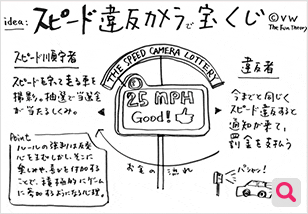 idea: スピード違反カメラで宝くじ
©VW
The Fun Theory
スピード順守者
スピードを守って走る車を
撮影。抽選で当選金
が当たるしくみ。
THE SPEED CAMERA LOTTERY
25 MPH
Good!
違反者
今までと同じく
スピード違反すると
通知が来て、
罰金を支払う
お金の流れ
Point
ルールの強制は反発
心を生む。しかし、そこに
楽しみや、喜びを付加する
ことで、積極的にゲーム
に参加するようになる心理。
パシャッ!